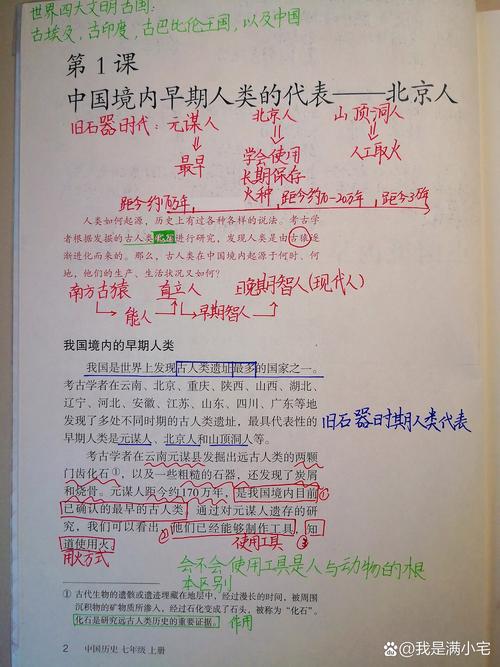 世界四大文明古国:
古埃及,古印度,古巴比伦王国,以及中国
第1课
中国境内早期人类的代表——北京人
旧石器时代: 元谋人 北京人 山顶洞人
最早 学会使用 人工取火
长期保存
火种
距今约170万年 距今约70-20万年 距今3万年
人类如何起源,历史上有过各种各样的说法。考古学
者根据发掘的古人类化石进行研究,发现人类是由古猿逐
渐进化而来的。那么,古人类在中国境内起源于何时、何
地,他们的生产、生活状况又如何?
南方古猿 直立人 晚期智人(现代人)
能人 早期智人
我国境内的早期人类
我国是世界上发现古人类遗址最多的国家之一。
考古学者在云南、北京、重庆、陕西、山西、湖北、
辽宁、河北、安徽、江苏、山东、四川、广东等地
发现了多处不同时期的古人类遗址,最具代表性的
早期人类是元谋人、北京人和山顶洞人等。
旧石器时期人类代表
考古学者在云南元谋县发掘出远古人类的两颗
门齿化石①,以及一些粗糙的石器,还发现了炭屑
和烧骨。元谋人距今约170万年,是我国境内目前①
已确认的最早的古人类。通过对元谋人遗存的研
究,我们可以看出,②他们已经能够制作工具,知
道使用火。 使用工具 ③
用火方式
会不会使用工具是人与动物的根
本区别
① 古代生物的遗骸或遗迹埋藏在地层中,经过漫长的时间,被周围
沉积物的矿物质所渗入,经过石化变成了石头,被称为“化石”。
化石是研究远古人类历史的重要证据。 作用
2 中国历史 七年级 上册
@我是满小宅